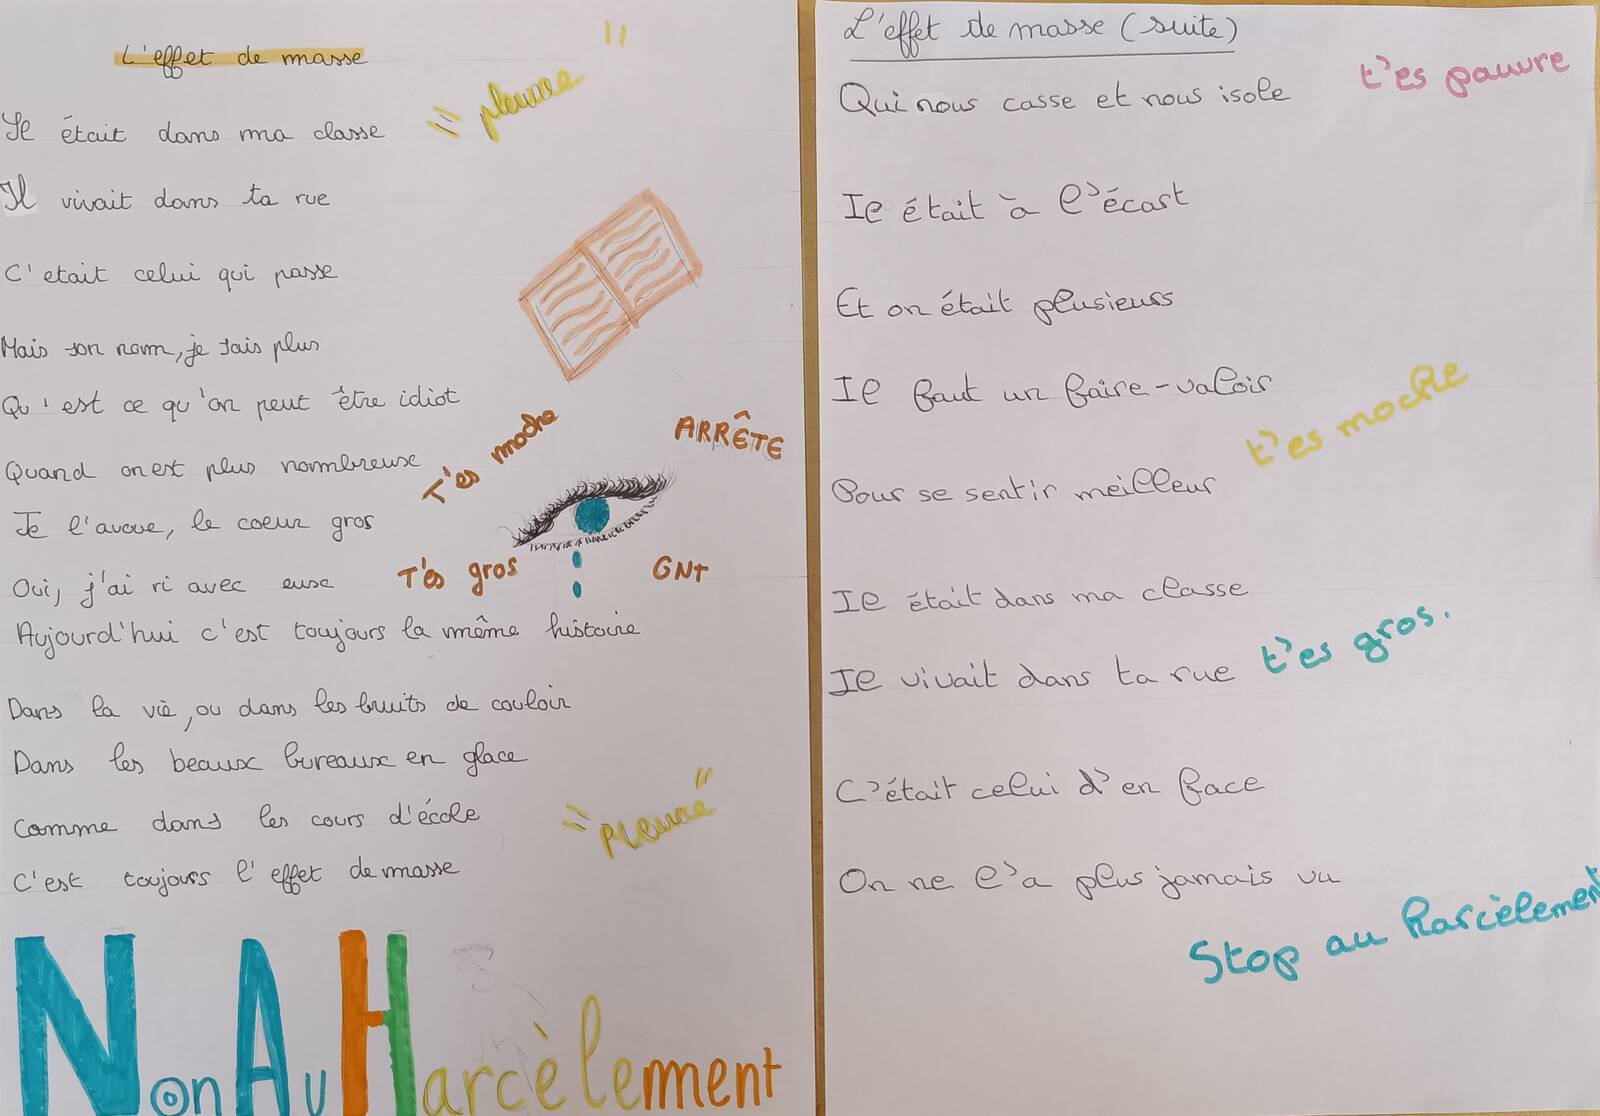 L'effet de masse
"pleure"
Il était dans ma classe
Il vivait dans ta rue
C'etait celui qui passe
Mais son nom, je sais plus
Qu'est ce qu'on peut être idiot
Quand on est plus nombreuse
Je l'avoue, le coeur gros
Oui, j'ai ri avec euse
T'es moche
ARRÊTE
T'es gros
GNT
Aujourd'hui c'est toujours la même histoire
Dans la vie, ou dans les bruits de couloir
Dans les beaux bureaux en glace
Comme dans les cours d'école
C'est toujours l'effet de masse
"Pleure"
Non Au Harcèlement
L'effet de masse (suite)
Qui nous casse et nous isole
t'es pauvre
Il était à l'écart
Et on était plusieurs
Il faut un faire-valoir
t'es moche
Pour se sentir meilleur
Il était dans ma classe
Il vivait dans ta rue
t'es gros.
C'était celui d'en face
On ne l'a plus jamais vu
Stop au harcèlement